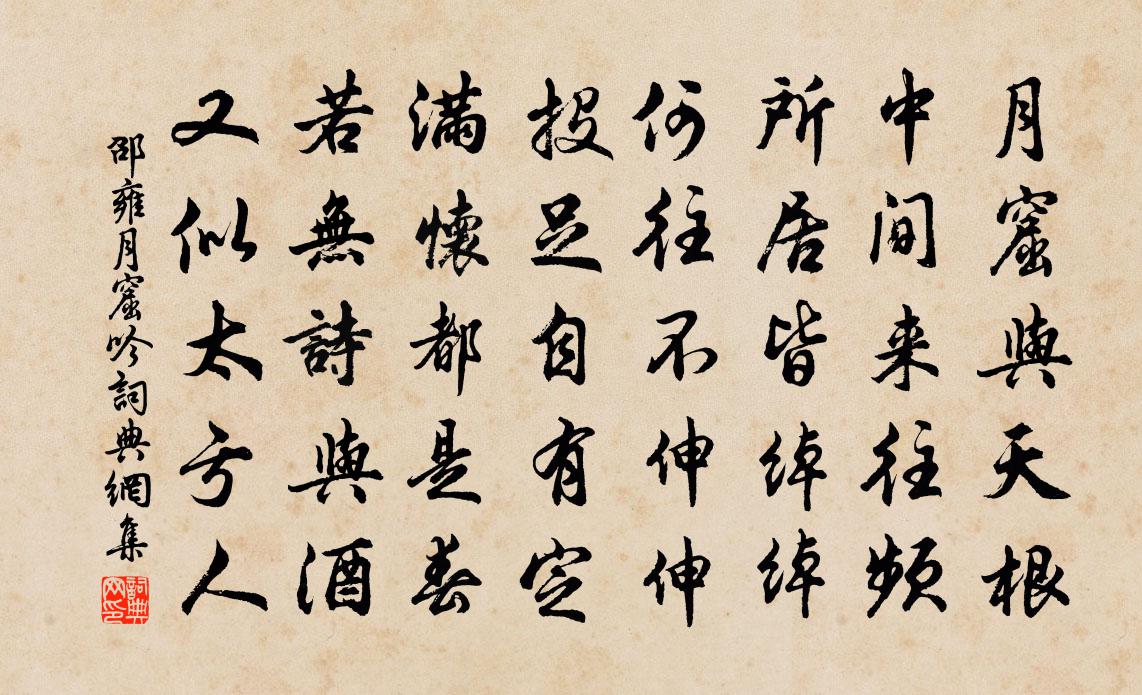 月窟與天根
中间来往频
所居皆绰绰
何往不伸伸
投足自有定
满懷都是春
若無詩與酒
又似太亏人
邵雍月窟吟詞典網集
詞典网印